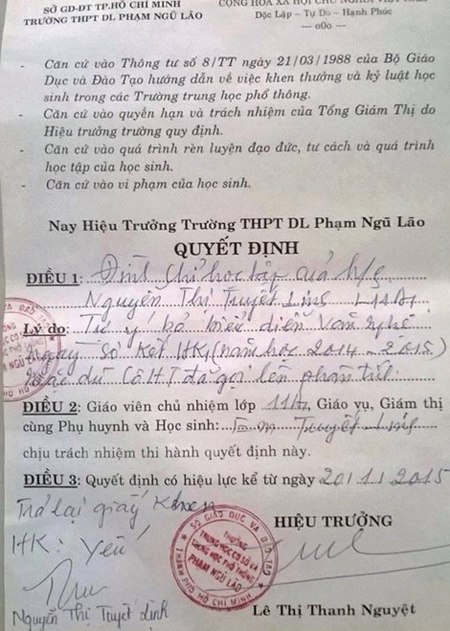 SỞ GD-ĐT TP.HỒ CHÍ MINH
TRƯỜNG THPT DL PHẠM NGŨ LÃO
CỘNG HÒA XÃ HỘI CHỦ NGHĨA
Độc Lập – Tự Do – Hạnh Phúc
--- o0o ---
- Căn cứ vào Thông tư số 8/TT ngày 21/03/1988 của Bộ Giáo
Dục và Đào Tạo hướng dẫn về việc khen thưởng và kỷ luật học
sinh trong các Trường trung học phổ thông.
- Căn cứ vào quyền hạn và trách nhiệm của Tổng Giám Thị do
Hiệu trưởng trường quy định.
- Căn cứ vào quá trình rèn luyện đạo đức, tư cách và quá trình
học tập của học sinh.
- Căn cứ vào vi phạm của học sinh.
Nay Hiệu Trưởng Trường THPT DL Phạm Ngũ Lão
QUYẾT ĐỊNH
ĐIỀU 1: Đình chỉ học tập của h/s
Nguyễn Thị Tuyết Linh
Lý do: Tự ý bỏ biểu diễn Văn nghệ
ngày Sơ Kết HK1 (năm học 2014 - 2015)
mặc dù Cô HT đã gọi lên phân tích
ĐIỀU 2: Giáo viên chủ nhiệm lớp 11A, Giáo vụ, Giám thị
cùng Phụ huynh và Học sinh: Tuyết Linh
chịu trách nhiệm thi hành quyết định này.
ĐIỀU 3: Quyết định có hiệu lực kể từ ngày 20/1/2015
Trả lại giấy khen
HK: Yếu
HIỆU TRƯỞNG
SỞ GIÁO DỤC VÀ ĐÀO TẠO
TRƯỜNG
TRUNG HỌC CƠ SỞ VÀ
TRUNG HỌC PHỔ THÔNG
PHẠM NGŨ LÃO
THÀNH PHỐ HỒ CHÍ MINH
Nguyễn Thị Tuyết Linh
Lê Thị Thanh Nguyệt